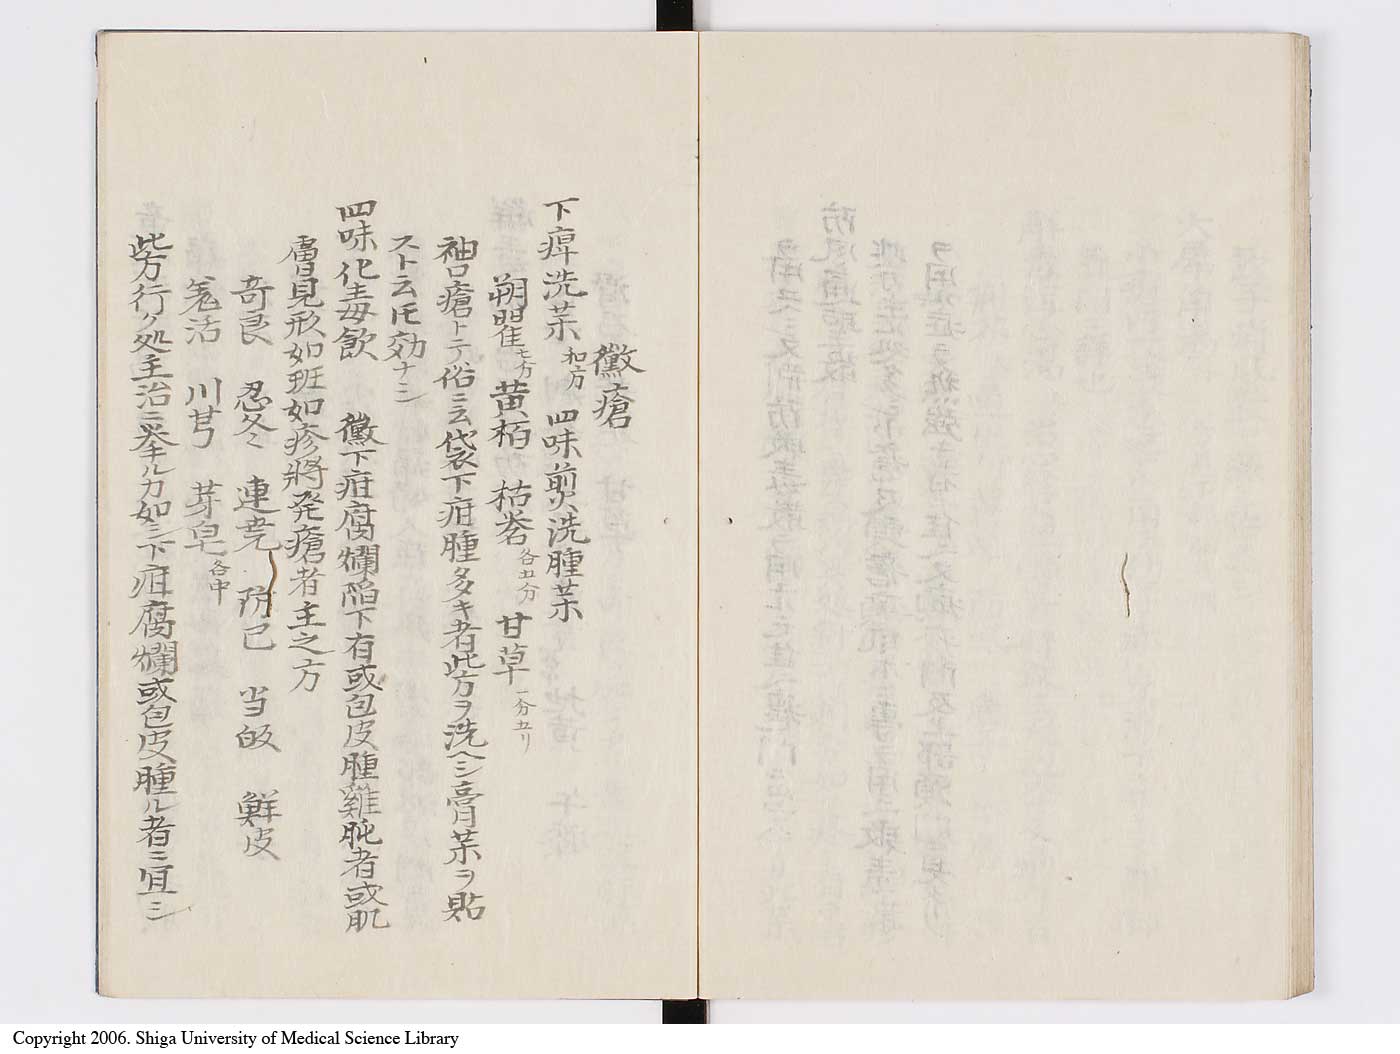 黴瘡
下痺洗菜 和方 四味煎洗腫菜
朔瞿 七分 黄栢 枯岺 各五分 甘草 一分五リ
袖口瘡トテ俗ニ云袋下疳腫多キ者此方ヲ洗ヘシ膏菜ヲ貼
スト云圧効ナシ
四味化毒飲 黴下疳腐爛陥下有或包皮腫雞肫者或肌
膚見形如班如疹將発瘡者主之方
奇良 忍冬 連堯 防已 当皈 鮮皮
羗活 川芎 芽皂 各中
此方行ク処主治ニ挙ル力如シ下疳腐爛或包皮腫ル者ニ宜シ
Copyright 2006. Shiga University of Medical Science Library